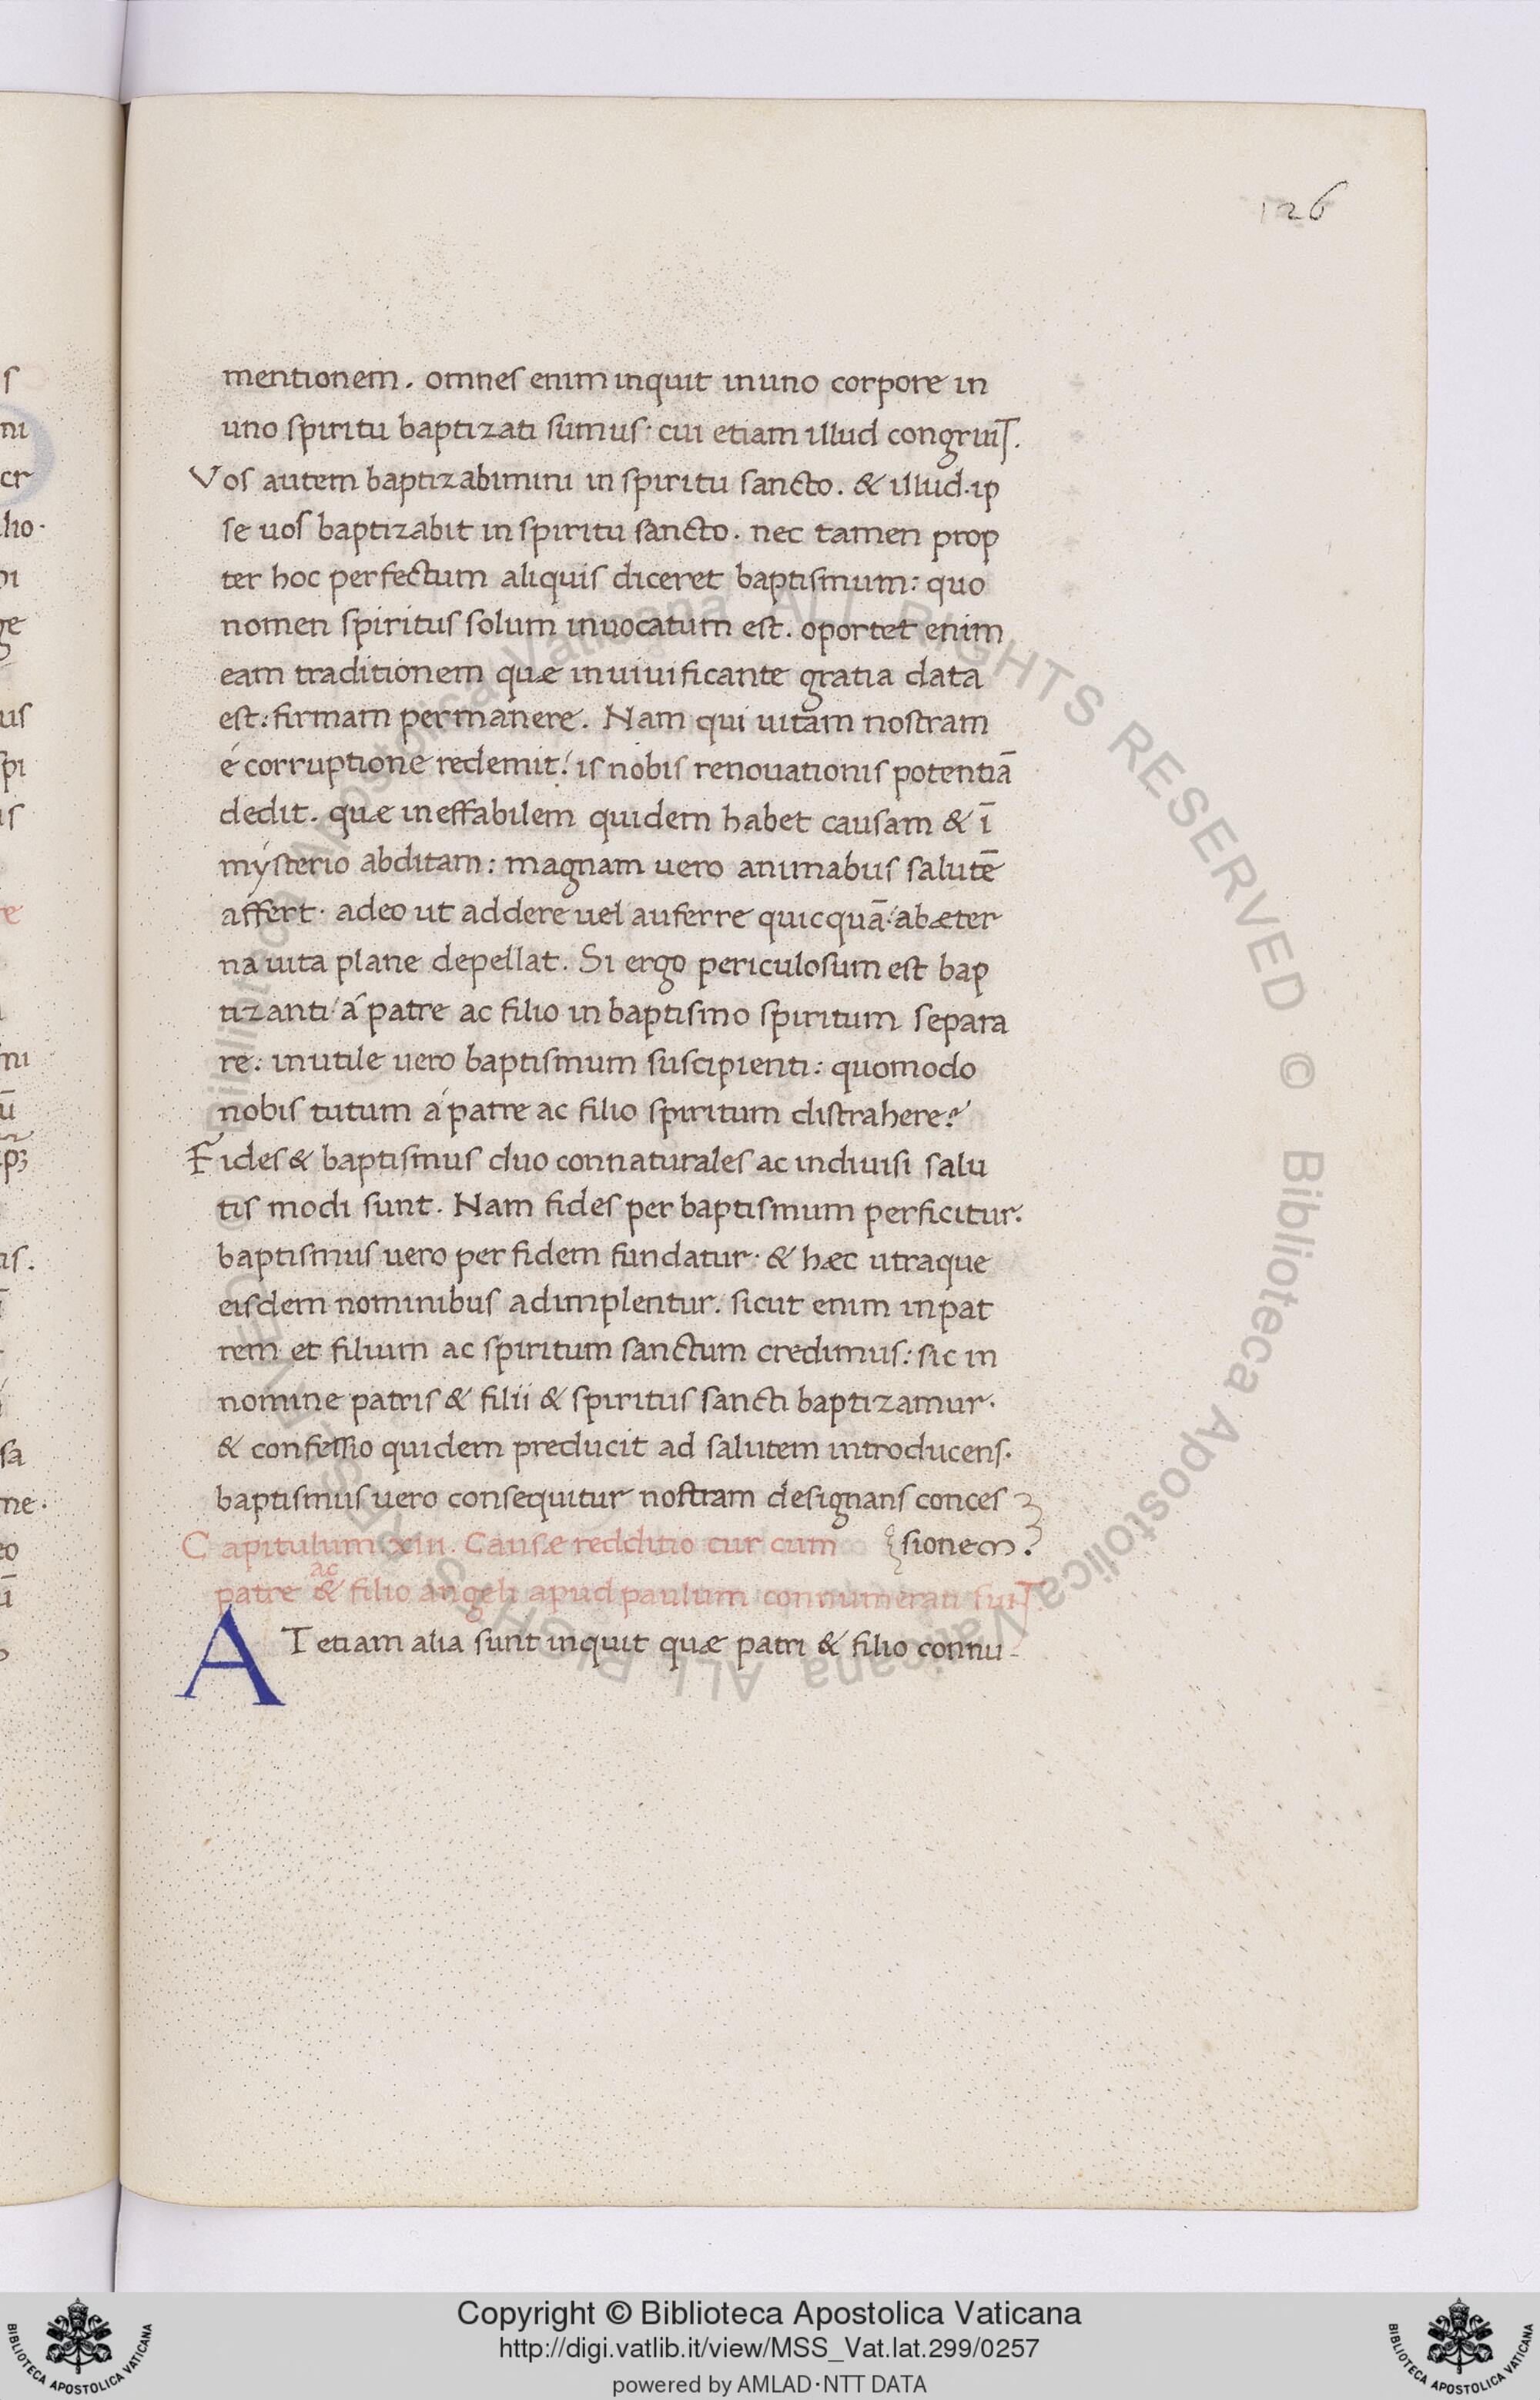 126
mentionem. omnes enim inquit in uno corpore in
uno spiritu baptizati sumus· cui etiam illud congruiT.
Vos autem baptizabimini in spiritu sancto. & illud· ip
se uos baptizabit in spiritu sancto. nec tamen prop
ter hoc perfectum aliquis diceret baptismum: quo
nomen spiritus solum inuocatum est. oportet enim
eam traditionem quæ in uiuificante gratia data
est: firmam permanere. Nam qui uitam nostram
é corruptione redemit: is nobis renouationis potentiā
dedit. quæ ineffabilem quidem habet causam & ī
mysterio abditam: magnam uero animabus salutē
affert· adeo ut addere uel auferre quicquā: ab æter
na uita plane depellat. Si ergo periculosum est bap
tizanti á patre ac filio in baptismo spiritum separa
re: inutile uero baptismum suscipienti: quomodo
nobis tutum á patre ac filio spiritum distrahere?
Fides & baptismus duo connaturales ac indiuisi salu
tis modi sunt. Nam fides per baptismum perficitur.
baptismus uero per fidem fundatur· & hæc utraque
eisdem nominibus adimplentur. sicut enim in pat
rem et filium ac spiritum sanctum credimus: sic in
nomine patris & filii & spiritus sancti baptizamur·
& confessio quidem preducit ad salutem introducens.
baptismus uero consequitur nostram designans conces
sionem.
Capitulum xiii. Causæ redditio cur cum
ac
patre & filio angeli apud paulum connumerati suiT.
AT etiam alia sunt inquit quæ patri & filio connu-
Copyright © Biblioteca Apostolica Vaticana
http://digi.vatlib.it/view/MSS_Vat.lat.299/0257
powered by AMLAD·NTT DATA
BIBLIOTECA APOSTOLICA VATICANA
BIBLIOTECA APOSTOLICA VATICANA
© Biblioteca Apostolica Vaticana ALL RIGHTS RESERVED © Biblioteca Apostolica Vaticana ALL RIGHTS RESERVED